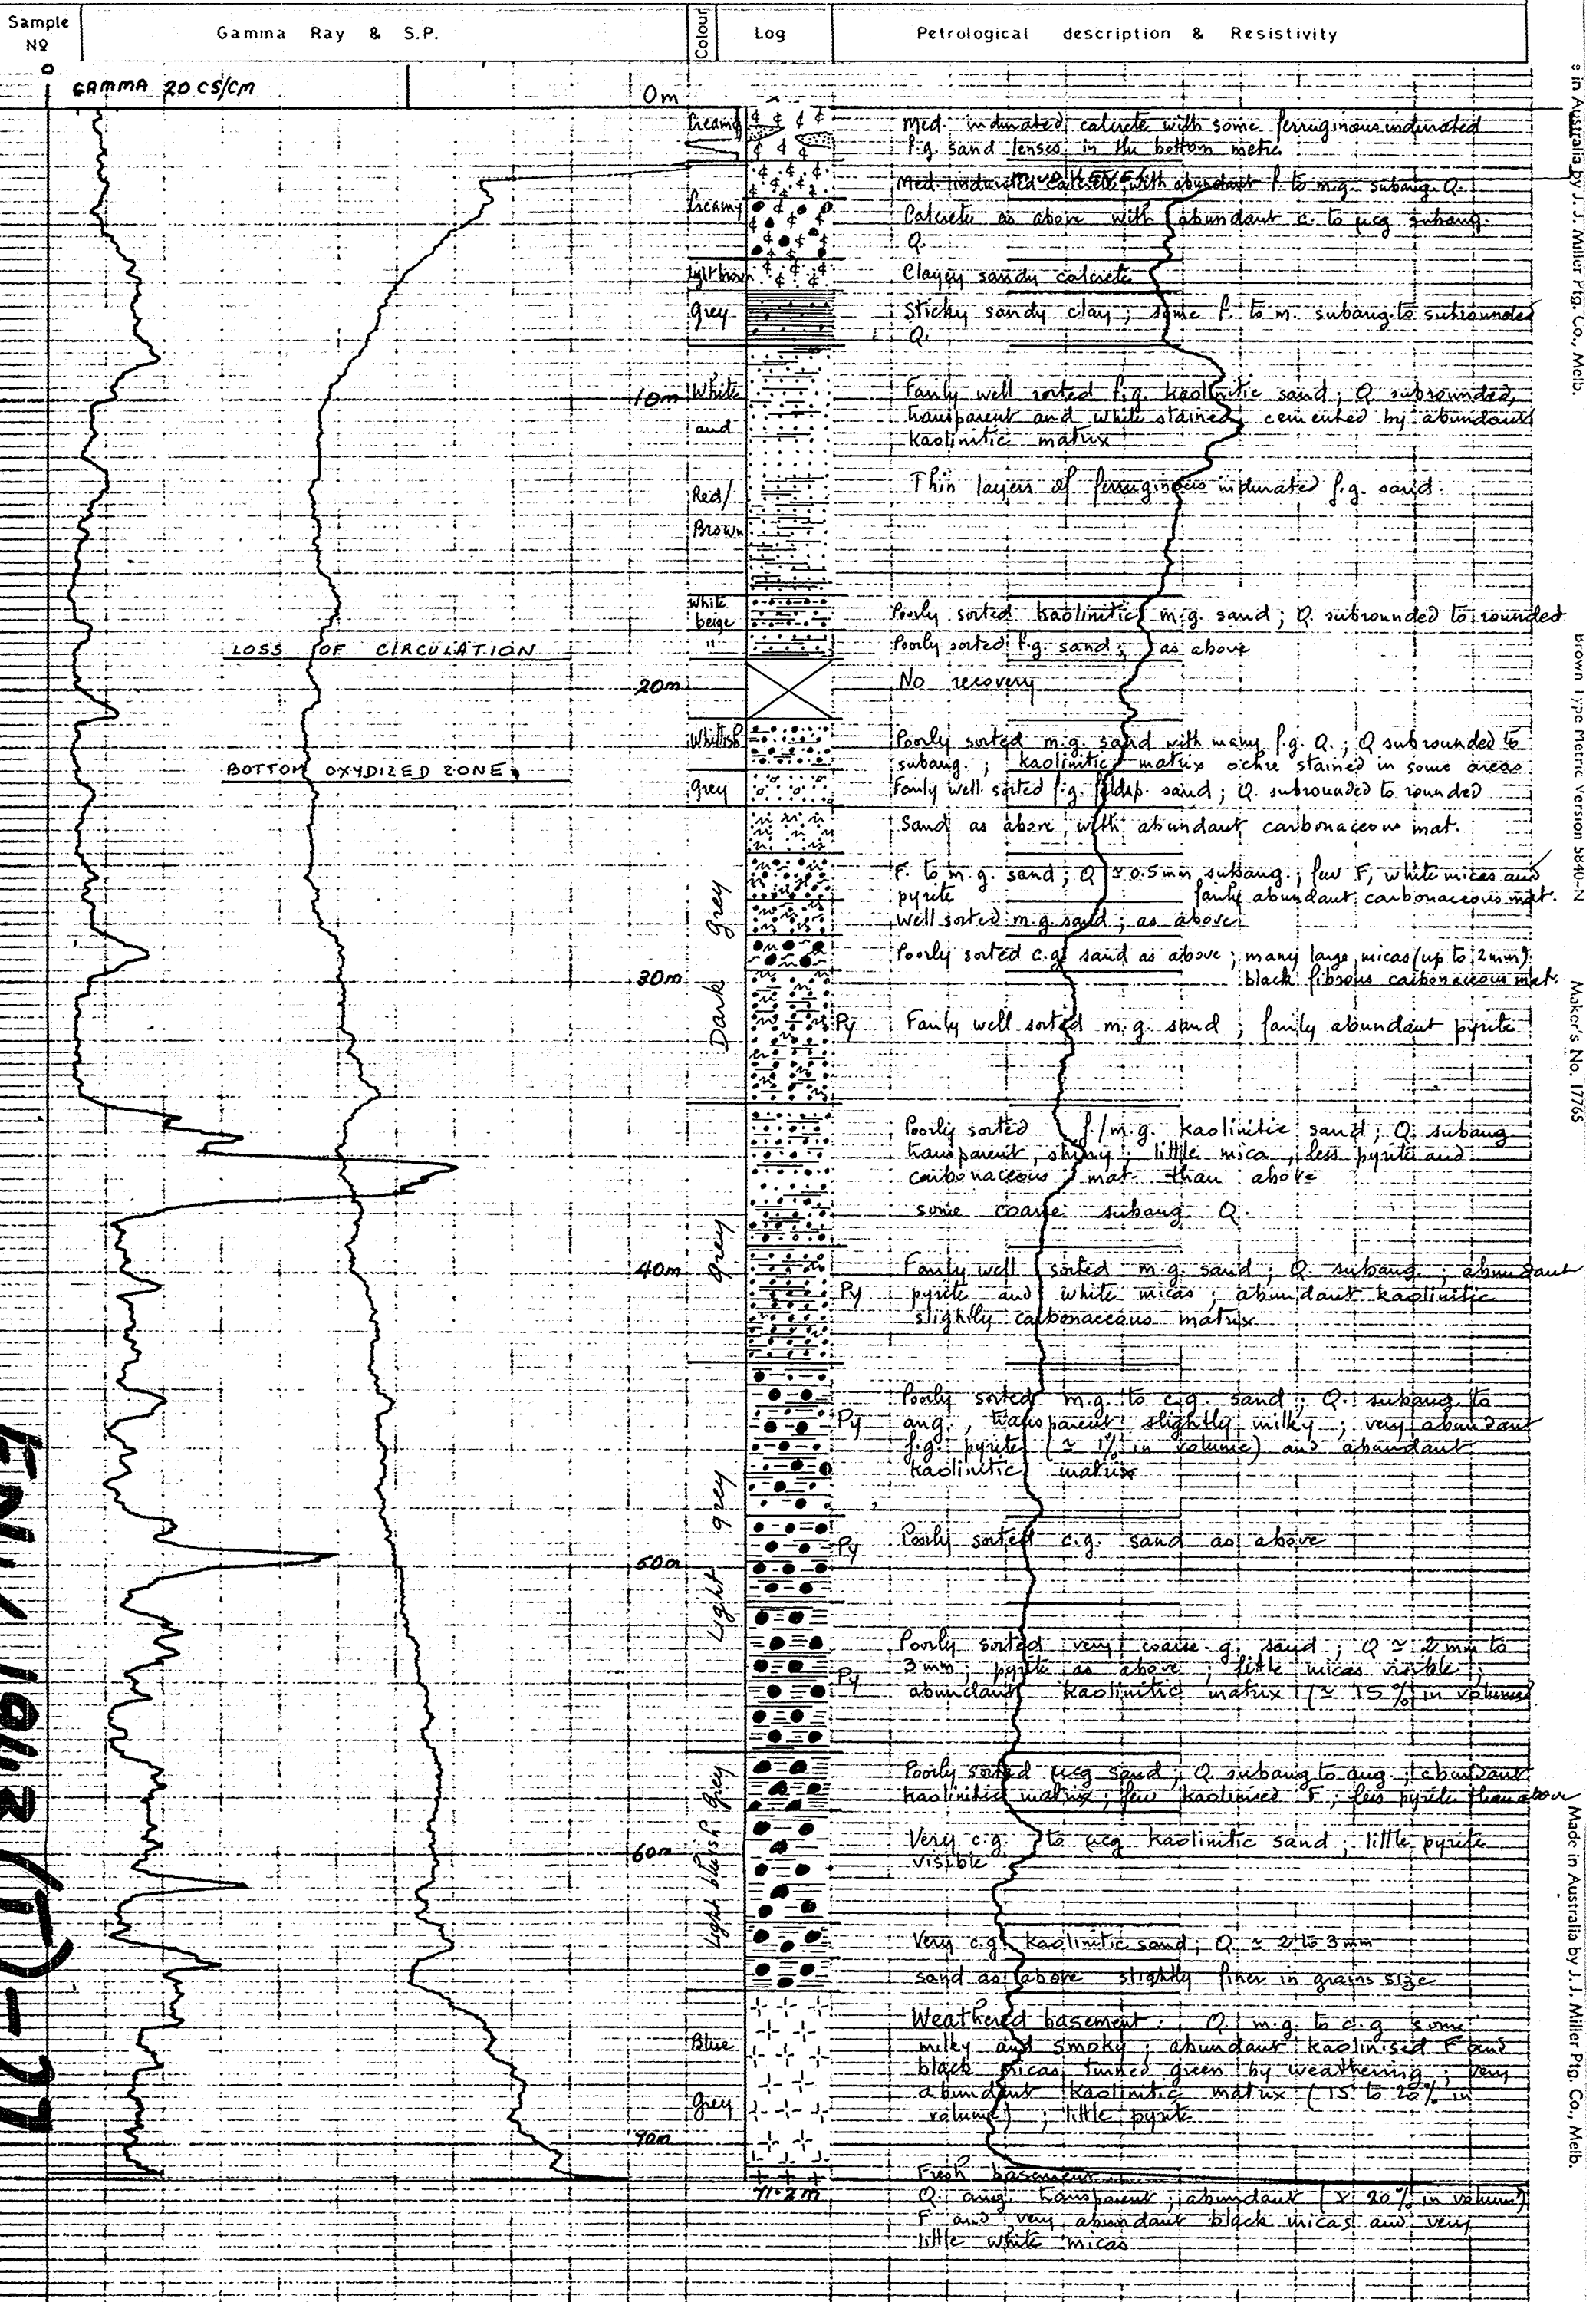 Sample
Nº
Gamma Ray & S.P.
Colour
Log
Petrological description & Resistivity
0
GAMMA 20 CS/CM
0m
Creamy
Med. indurated calcrete with some ferruginous indurated
f.g. sand lenses in the bottom metre
MUD LEVEL
Med. indurated calcrete with abundant f. to m.g. subang. Q.
Creamy
Calcrete as above with abundant c. to µcg subang.
Q.
light brown
Clayey sandy calcrete
grey
Sticky sandy clay; some f. to m. subang. to subrounded
Q.
10m
White
and
Fairly well sorted f.g. kaolinitic sand; Q subrounded,
transparent and white stained, cemented by abundant
kaolinitic matrix
Red/
Brown
Thin layers of ferruginous indurated f.g. sand.
White
beige
Poorly sorted kaolinitic m.g. sand; Q. subrounded to rounded
"
Poorly sorted f.g. sand; as above
LOSS OF CIRCULATION
20m
No recovery
Whitish
Poorly sorted m.g. sand with many f.g. Q.; Q subrounded to
subang.; kaolinitic matrix ochre stained in some areas
BOTTOM OXYDIZED ZONE
grey
Fairly well sorted f.g. feldsp. sand; Q. subrounded to rounded
Sand as above with abundant carbonaceous mat.
Dark grey
F. to m.g. sand; Q ≃ 0.5mm subang.; few F, white micas and
pyrite fairly abundant carbonaceous mat.
well sorted m.g. sand; as above
Poorly sorted c.g. sand as above; many large micas (up to 2mm)
black fibrous carbonaceous mat.
30m
Py
Fairly well sorted m.g. sand; fairly abundant pyrite
Poorly sorted f./m.g. kaolinitic sand; Q. subang
transparent, shiny; little mica, less pyrite and
carbonaceous mat. than above
some coarse subang Q.
grey
40m
Py
Fairly well sorted m.g. sand; Q. subang.; abundant
pyrite and white micas; abundant kaolinitic
slightly carbonaceous matrix
Light grey
Py
Poorly sorted m.g. to c.g. sand; Q. subang to
ang., transparent slightly milky; very abundant
f.g. pyrite (≃ 1% in volume) and abundant
kaolinitic matrix
50m
Py
Poorly sorted c.g. sand as above
Py
Poorly sorted very coarse g. sand; Q ≃ 2mm to
3mm; pyrite as above; little micas visible;
abundant kaolinitic matrix (≃ 15% in volume)
Light bluish grey
Poorly sorted µcg sand; Q subang to ang; abundant
kaolinitic matrix; few kaolinised F; less pyrite than above
60m
Very c.g. to µcg kaolinitic sand; little pyrite
visible
Very c.g. kaolinitic sand; Q ≃ 2 to 3mm
sand as above slightly finer in grains size
Blue
Grey
Weathered basement: Q m.g. to c.g some
milky and smoky; abundant kaolinised F and
black micas turned green by weathering; very
abundant kaolinitic matrix (15 to 20% in
volume); little pyrite
70m
Fresh basement
71.2m
Q. ang. transparent; abundant (≃ 20% in volume)
F and very abundant black micas and very
little white micas
e in Australia by J. J. Miller Ptg. Co., Melb.
Brown Type Metric Version 5840-N
Maker's No. 17765
Made in Australia by J. J. Miller Ptg. Co., Melb.